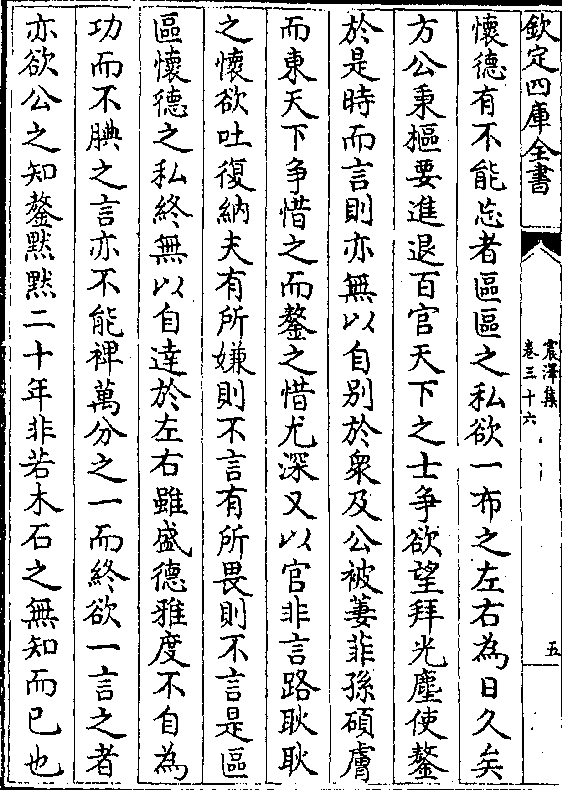 欽定四庫全書
震澤集
卷三十六
五
懷德有不能忘者區區之私欲一布之左右為日久矣
方公秉樞要進退百官天下之士爭欲望拜光塵使鏊
於是時而言則亦無以自别於衆及公被萋菲孫碩膚
而東天下爭惜之而鏊之惜尤深又以官非言路耿耿
之懷欲吐復納夫有所嫌則不言有所畏則不言是區
區懷德之私終無以自達於左右雖盛德雅度不自為
功而不腆之言亦不能裨萬分之一而終欲一言之者
亦欲公之知鏊默默二十年非若木石之無知而已也